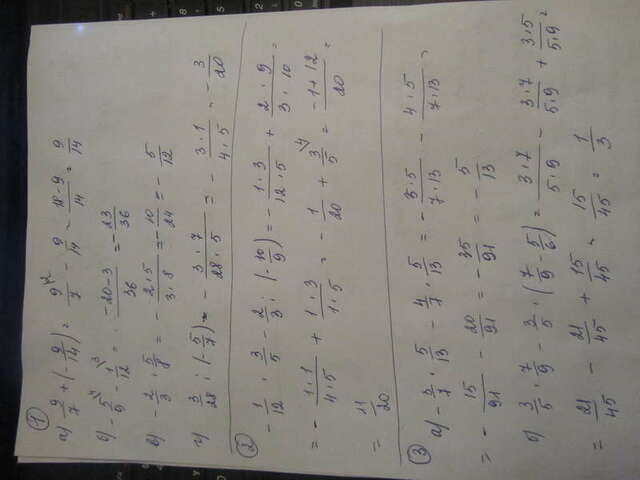 ①
а) 9/7 + (- 9/14) = 9\2/7 - 9/14 = 18-9/14 = 9/14
б) - 5\4/9 - 1\3/12 = -20-3/36 = - 23/36
в) - 2/3 · 5/8 = - 2·5/3·8 = - 10/24 = - 5/12
г) 3/28 : (- 5/7) = - 3·7/28·5 = - 3·1/4·5 = - 3/20
②
- 1/12 · 3/5 - 2/3 : (- 10/9) = - 1·3/12·5 + 2·9/3·10 =
= - 1·1/4·5 + 1·3/1·5 = - 1/20 + 3\4/5 = -1+12/20 =
= 11/20
③ а) - 3/7 · 5/13 - 4/7 · 5/13 = - 3·5/7·13 - 4·5/7·13 =
= - 15/91 - 20/91 = - 35/91 = - 5/13
б) 3/5 · 7/9 - 3/5 · (7/9 - 5/6) = 3·7/5·9 - 3·7/5·9 + 3·5/5·9 =
= 21/45 - 21/45 + 15/45 = 15/45 = 1/3